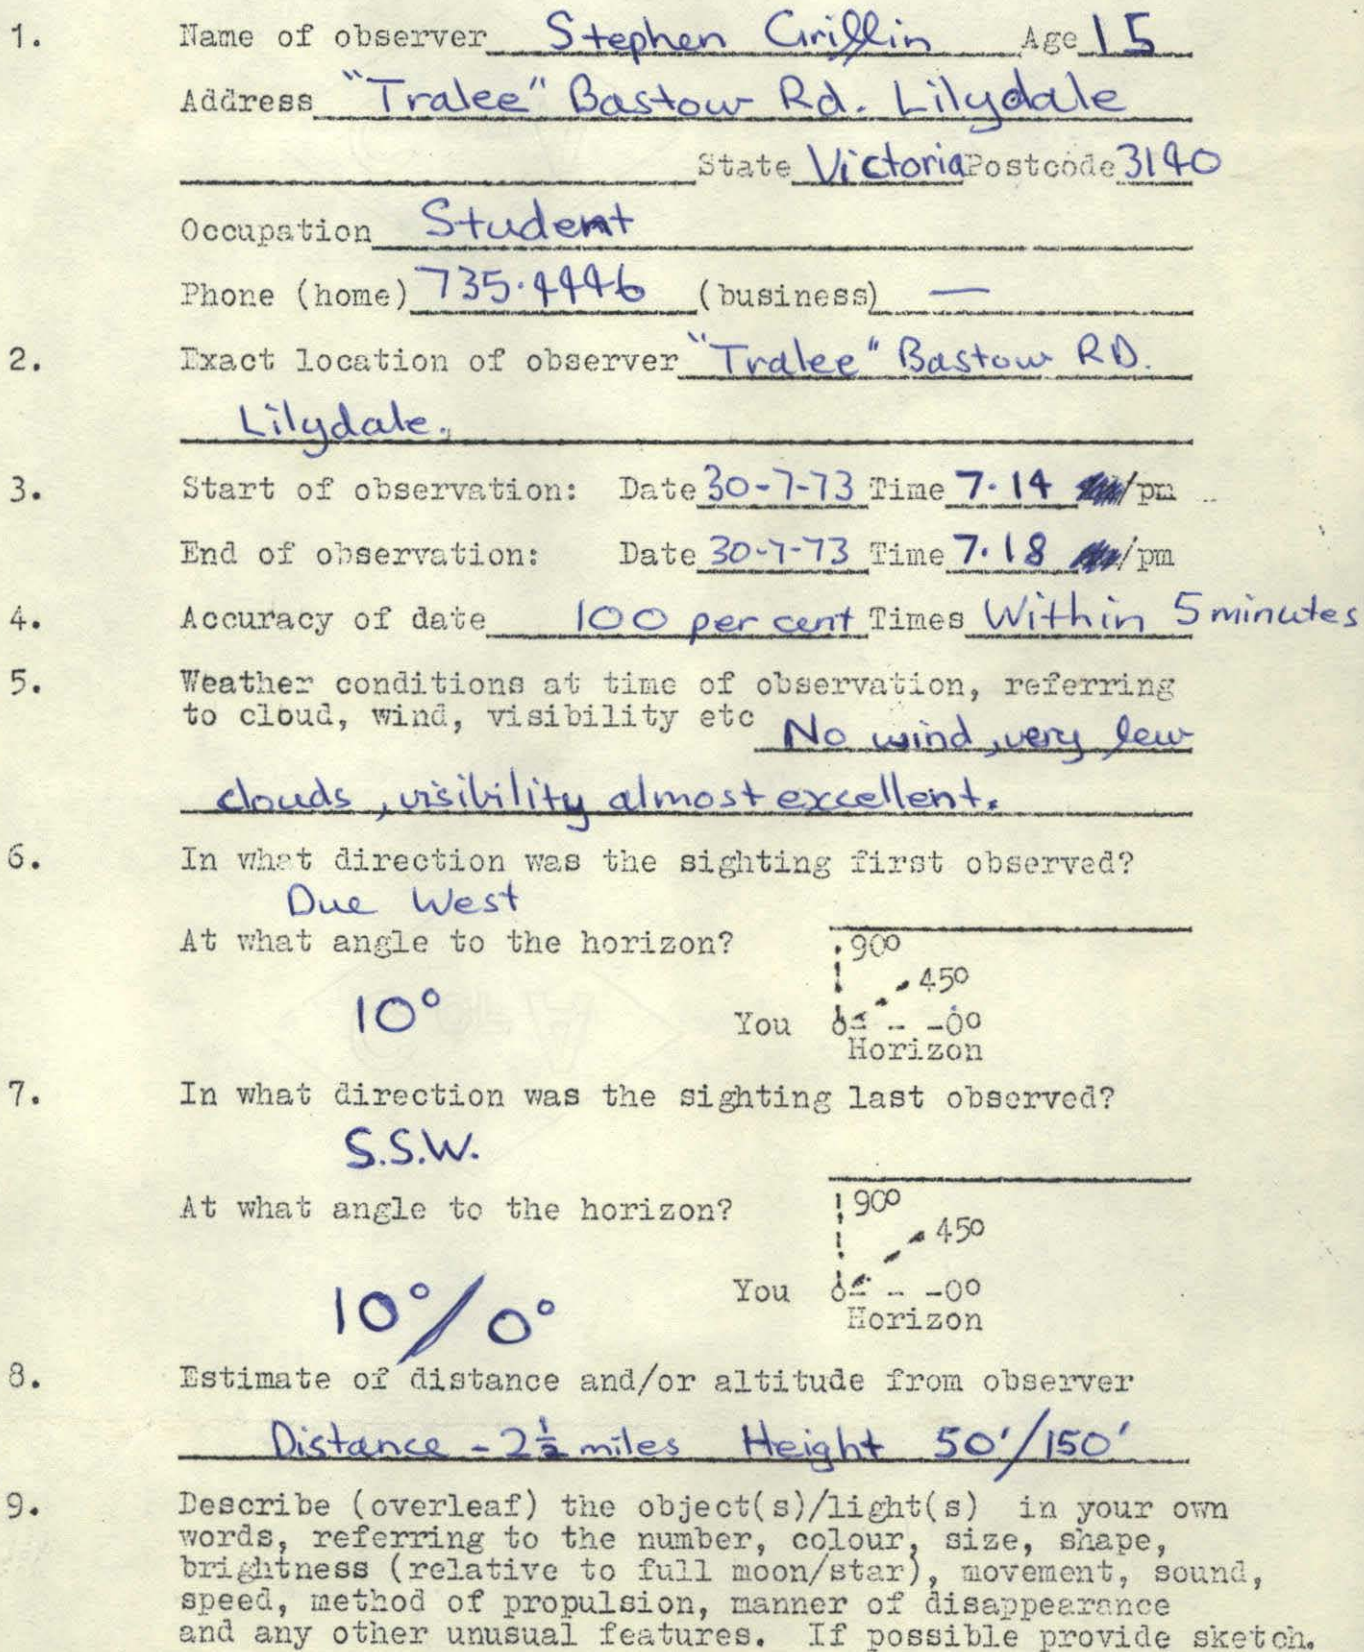 1. Name of observer Stephen Griffin Age 15
Address "Tralee" Bastow Rd. Lilydale
State Victoria Postcode 3140
Occupation Student
Phone (home) 735.4446 (business) —
2. Exact location of observer "Tralee" Bastow RD.
Lilydale.
3. Start of observation: Date 30-7-73 Time 7.14 /pm
End of observation: Date 30-7-73 Time 7.18 /pm
4. Accuracy of date 100 per cent Times Within 5 minutes
5. Weather conditions at time of observation, referring
to cloud, wind, visibility etc No wind, very few
clouds, visibility almost excellent.
6. In what direction was the sighting first observed?
Due West
At what angle to the horizon? 90o
45o
10° You -0o
Horizon
7. In what direction was the sighting last observed?
S.S.W.
At what angle to the horizon? 90o
45o
10°/0° You -0o
Horizon
8. Estimate of distance and/or altitude from observer
Distance - 2½ miles Height 50'/150'
9. Describe (overleaf) the object(s)/light(s) in your own
words, referring to the number, colour, size, shape,
brightness (relative to full moon/star), movement, sound,
speed, method of propulsion, manner of disappearance
and any other unusual features. If possible provide sketch.